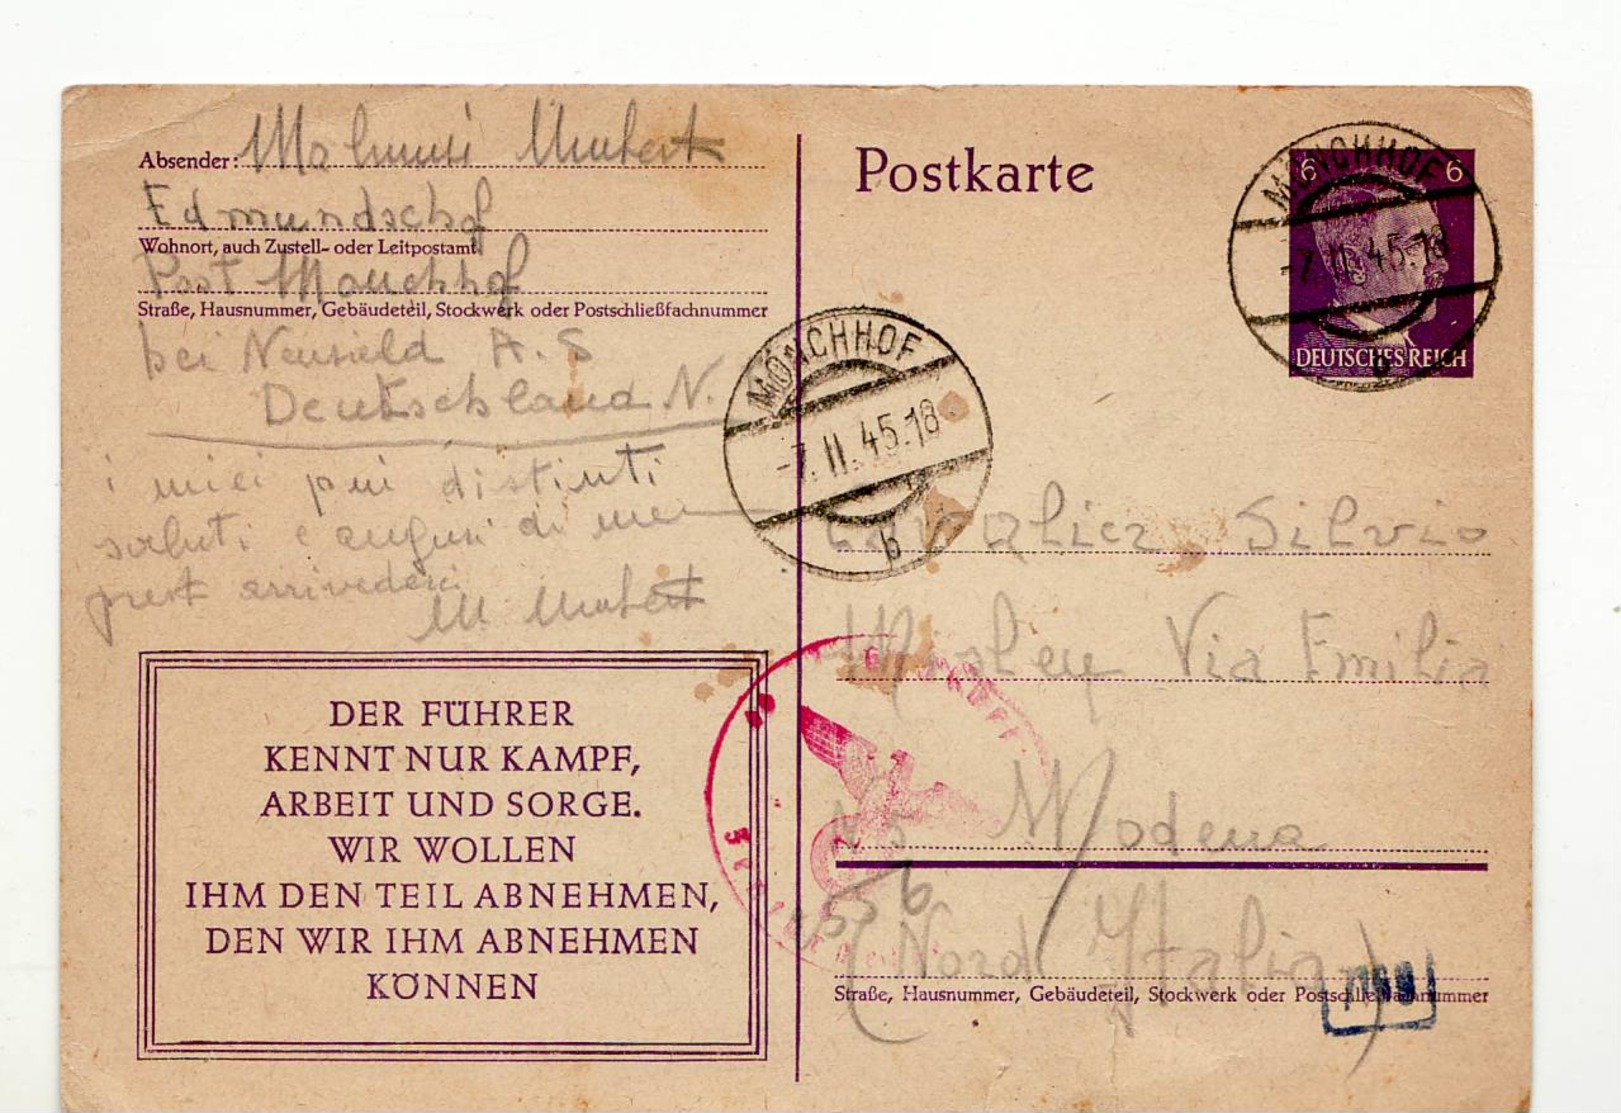 Absender:
Edmundschof
Wohnort, auch Zustell- oder Leitpostamt
Post Monchhof
Straße, Hausnummer, Gebäudeteil, Stockwerk oder Postschließfachnummer
bei Neusield A. S
Deutschland N.
i miei piu distinti
saluti e auguri di
prest arrivederci
M.
DER FÜHRER
KENNT NUR KAMPF,
ARBEIT UND SORGE.
WIR WOLLEN
IHM DEN TEIL ABNEHMEN,
DEN WIR IHM ABNEHMEN
KÖNNEN
Postkarte
6 6
DEUTSCHES REICH
MÖNCHHOF
-7.II.45.18
b
MÖNCHHOF
-7.II.45.18
b
Silvio
Via Emilia
Modena
(Nord Italia)
Straße, Hausnummer, Gebäudeteil, Stockwerk oder Postschließfachnummer